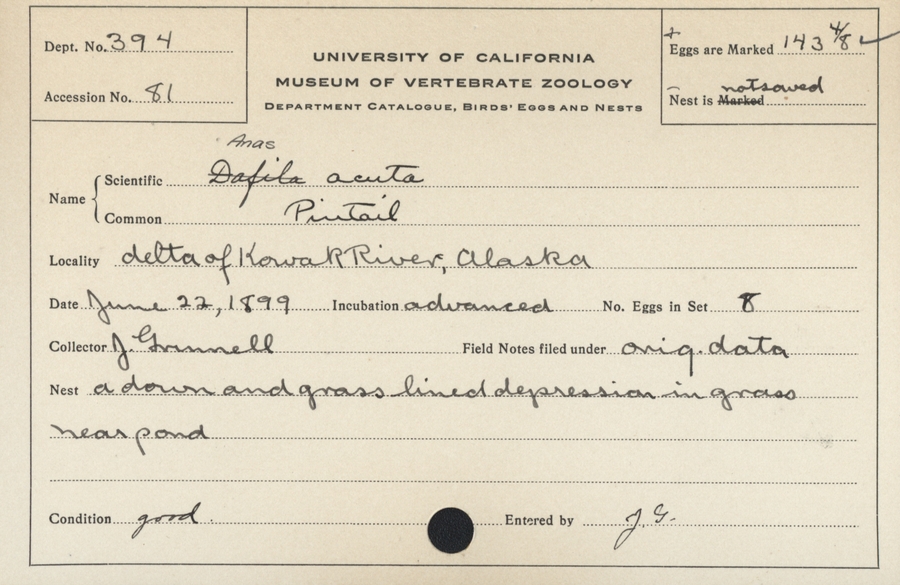 Dept. No. 394
Accession No. 81
UNIVERSITY OF CALIFORNIA
MUSEUM OF VERTEBRATE ZOOLOGY
DEPARTMENT CATALOGUE, BIRDS' EGGS AND NESTS
+
Eggs are Marked 143 4/8 ✓
not saved
Nest is Marked
Anas
Name { Scientific Dafila acuta
Common Pintail
Locality delta of Kowak River, Alaska
Date June 22, 1899 Incubation advanced No. Eggs in Set 8
Collector J. Grinnell Field Notes filed under orig. data
Nest a down and grass lined depression in grass
near pond
Condition good. Entered by J. G.